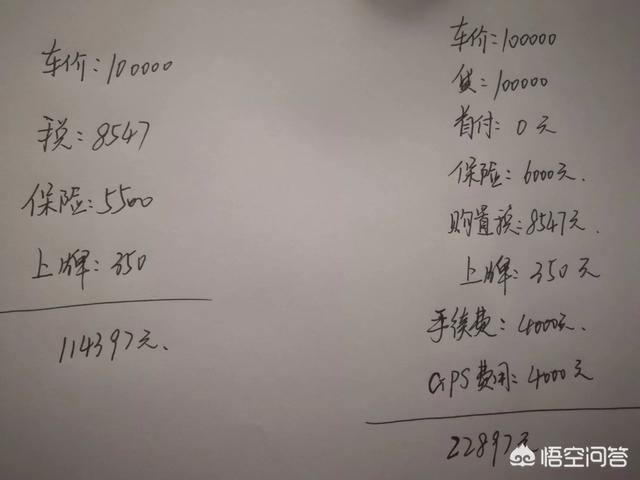 车价:100000
税:8547
保险:5500
上牌:350
114397元.
车价:100000
贷:100000
首付:0元
保险:6000元.
购置税:8547元.
上牌:350元
手续费:4000元.
GPS费用:4000元
22897元
悟空问答